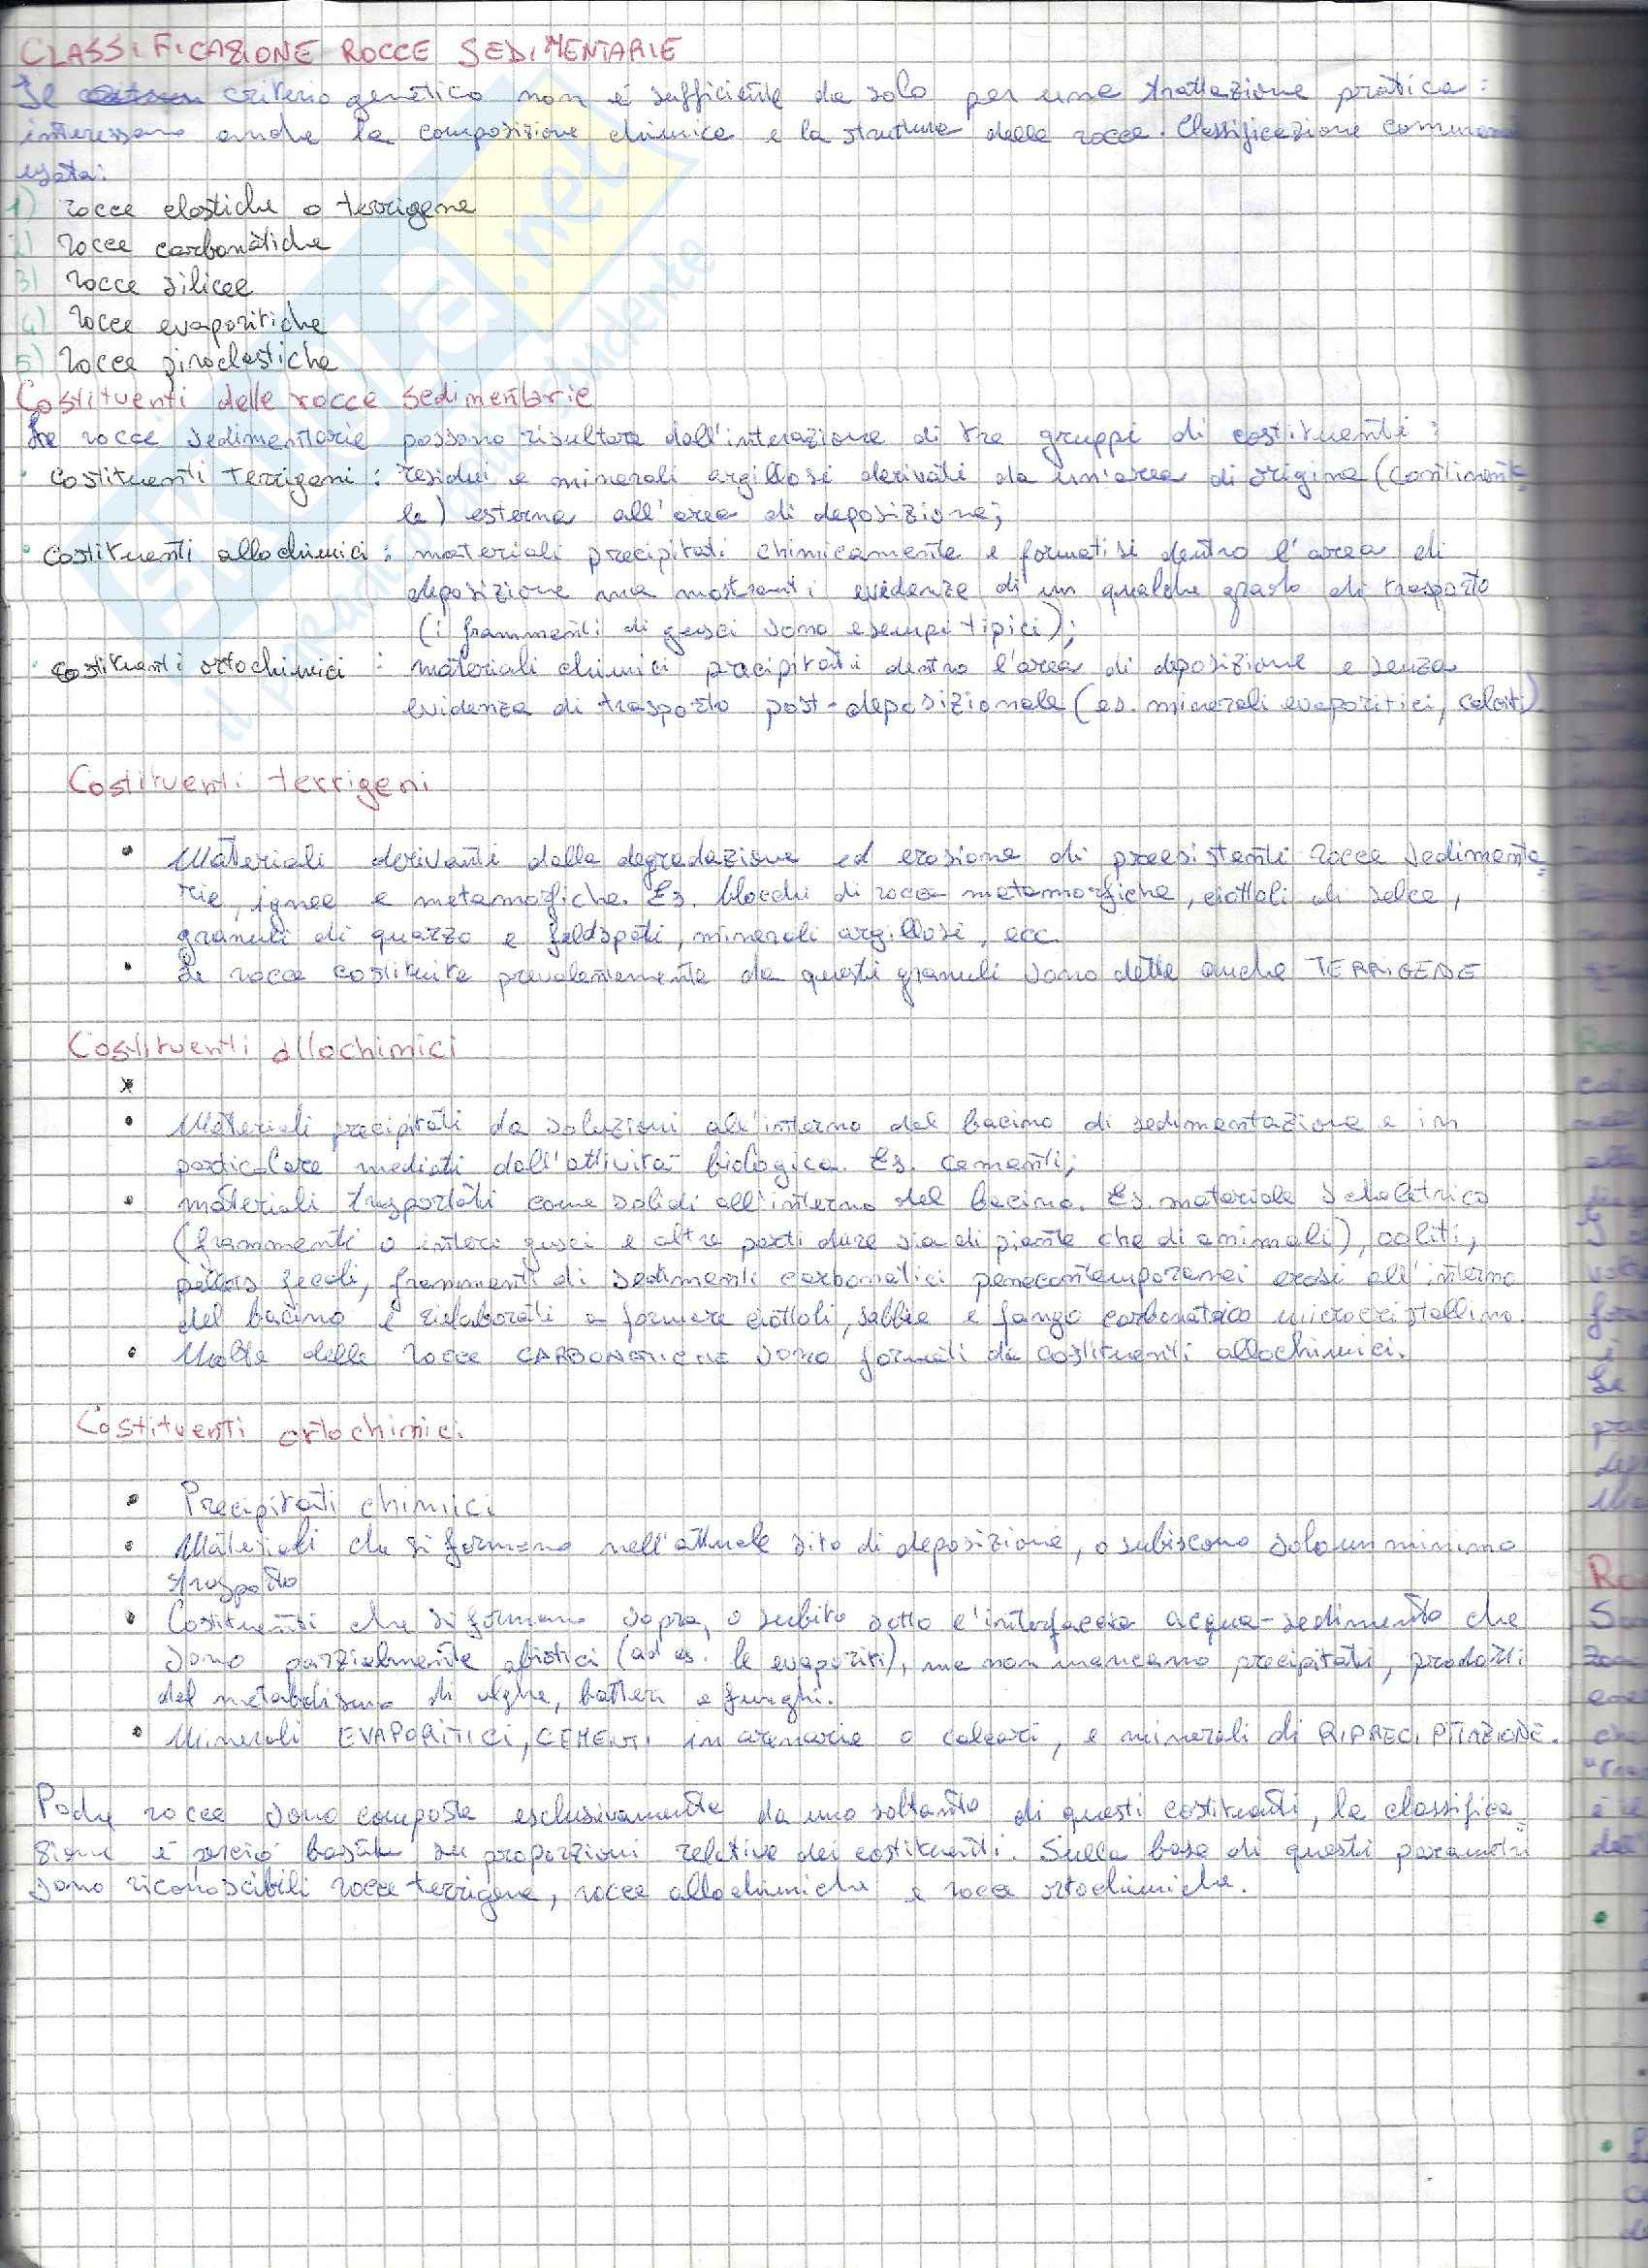 CLASSIFICAZIONE ROCCE SEDIMENTARIE
Il criterio genetico non è sufficiente da solo per una trattazione pratica:
interessano anche la composizione chimica e la struttura delle rocce. Classificazione comunem
usata:
1) rocce clastiche o terrigene
2) rocce carbonatiche
3) rocce silicee
4) rocce evaporitiche
5) rocce piroclastiche
Costituenti delle rocce sedimentarie
Le rocce sedimentarie possono risultare dall'interazione di tre gruppi di costituenti:
• costituenti terrigeni: residui e minerali argillosi derivati da un'area di origine (continenta-
le) esterna all'area di deposizione;
• costituenti allochimici: materiali precipitati chimicamente e formatisi dentro l'area di
deposizione ma mostranti evidenze di un qualche grado di trasporto
(i frammenti di gusci sono esempi tipici);
• costituenti ortochimici: materiali chimici precipitati dentro l'area di deposizione e senza
evidenza di trasporto post-deposizionale (es. minerali evaporitici, calciti)
Costituenti terrigeni
• Materiali derivanti dalla degradazione ed erosione di preesistenti rocce sedimenta-
rie, ignee e metamorfiche. Es. blocchi di rocce metamorfiche, ciottoli di selce,
granuli di quarzo e feldspati, minerali argillosi, ecc.
• Le rocce costituite prevalentemente da questi granuli sono dette anche TERRIGENE
Costituenti allochimici
• Materiali precipitati da soluzioni all'interno del bacino di sedimentazione e in
particolare mediati dall'attività biologica. Es. cementi;
• materiali trasportati come solidi all'interno del bacino. Es. materiale scheletrico
(frammenti o interi gusci e altre parti dure sia di piante che di animali), ooliti,
pellets fecali, frammenti di sedimenti carbonatici penecontemporanei erosi all'interno
del bacino e rielaborati a formare ciottoli, sabbie e fango carbonatico microcristallino.
• Molte delle rocce CARBONATICHE sono formati da costituenti allochimici.
Costituenti ortochimici
• Precipitati chimici
• Materiali che si formano nell'attuale sito di deposizione, o subiscono solo un minimo
trasporto
• Costituenti che si formano sopra, o subito sotto l'interfaccia acqua-sedimento che
sono parzialmente abiotici (ad es. le evaporiti), ma non mancano precipitati, prodotti
del metabolismo di alghe, batteri e funghi.
• Minerali EVAPORITICI, CEMENTI in arenarie o calcari, e minerali di RIPRECIPITAZIONE.
Poche rocce sono composte esclusivamente da uno soltanto di questi costituenti, la classifica-
zione è perciò basata su proporzioni relative dei costituenti. Sulla base di questi parametri
sono riconoscibili rocce terrigene, rocce allochimiche e rocce ortochimiche.